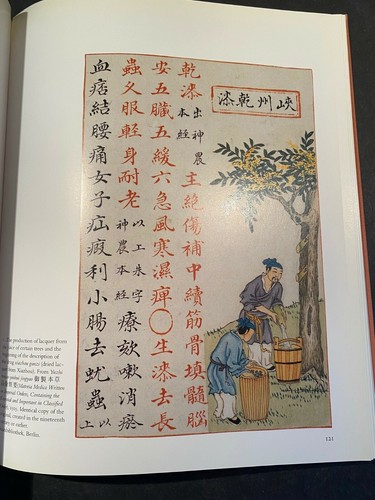 峽州乾漆
乾漆出神農本經主絕傷補中續筋骨填髓腦
安五臟五緩六急風寒濕痺〇生漆去長
蟲久服輕身耐老以上朱字神農本經療欬嗽消瘀
血痞結腰痛女子疝瘕利小腸去蚘蟲以上
production of lacquer from
of certain trees and the
beginning of the description of
(dried lac-
from Xiazhou). From: Yuzhi
御製本草
(Materia Medica Written
Orders, Containing the
and Important in Classified
1505. Identical copy of the
created in the nineteenth
or earlier.
Berlin.
121